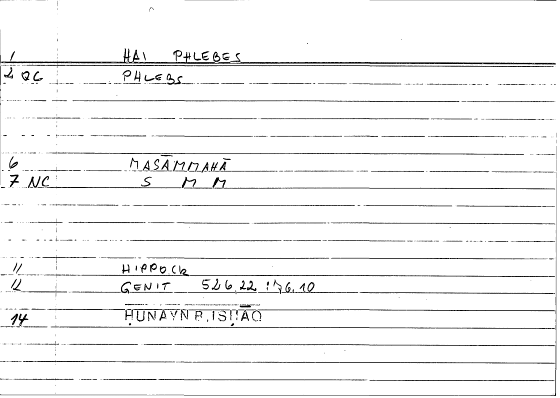 1 HAI PHLEBES
2 QC PHLEBS
6 MASĀMMAHĀ
7 NC S M M
11 HIPPOCR
12 GENIT 526,22
14 ḤUNAYN B. ISḤĀQ